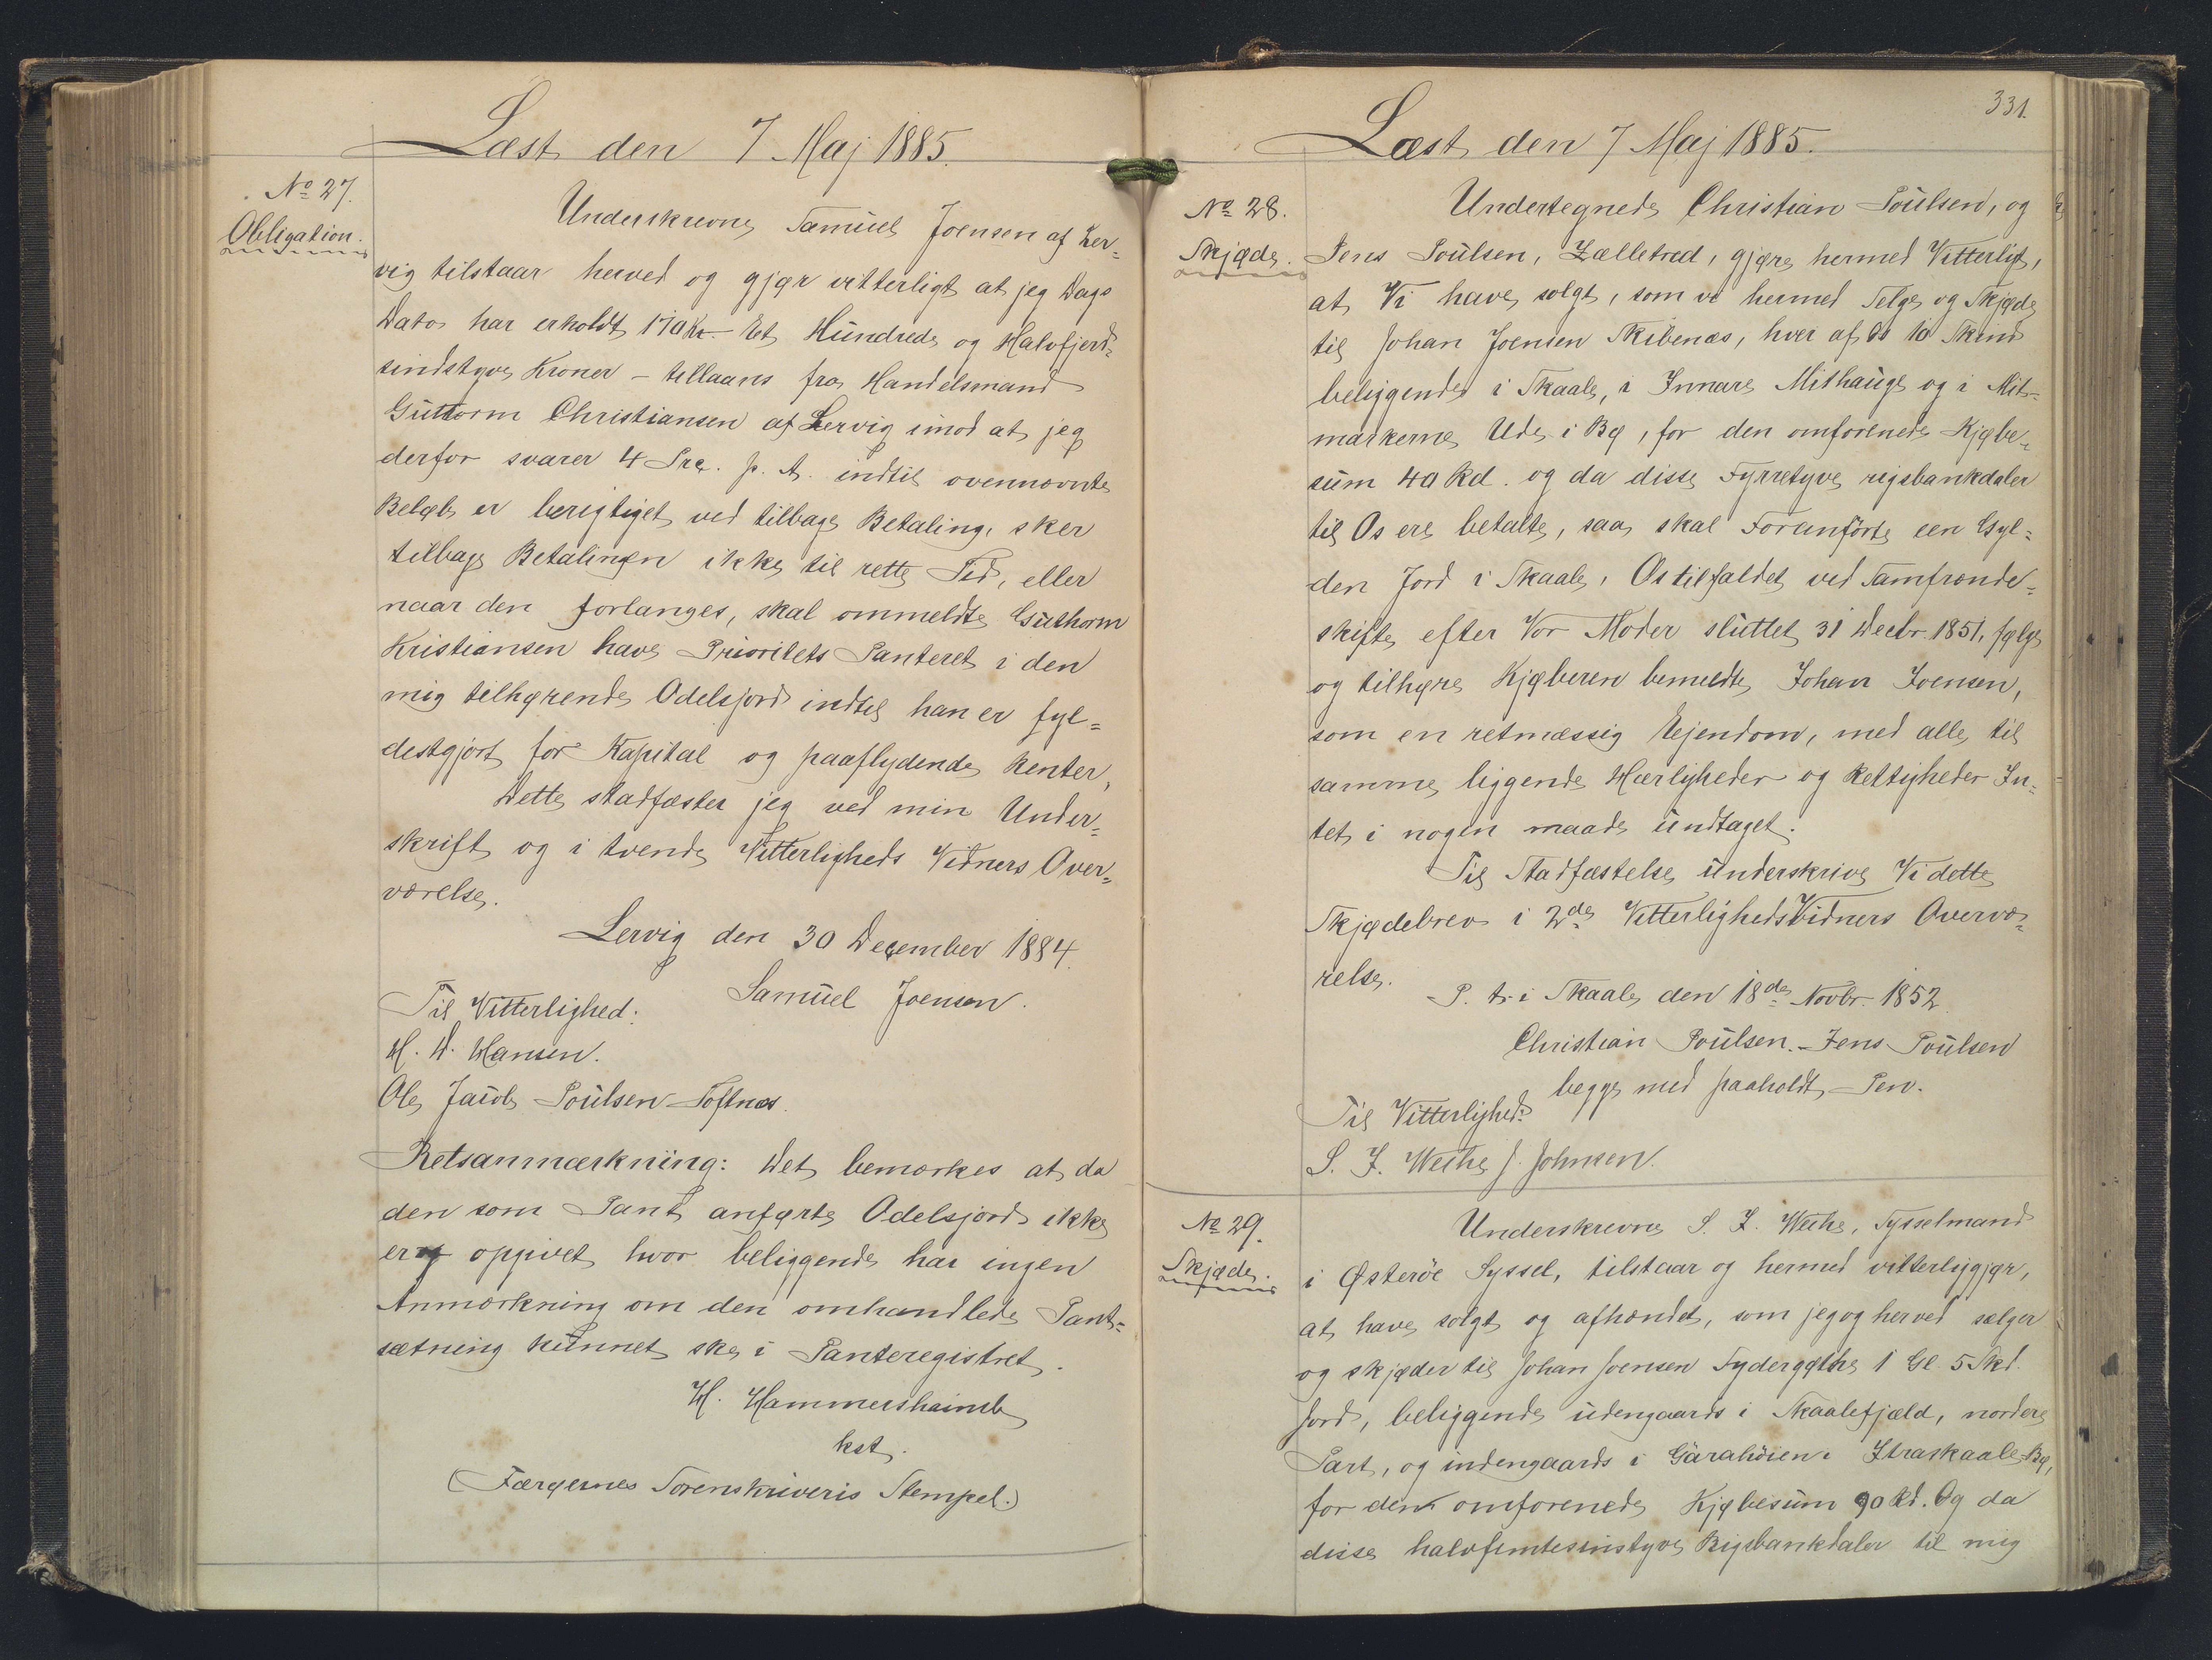 Læst den 7 Maj 1885.
No 27.
Obligation.
Underskrevne Samuel Joensen af Ler=
vig tilstaar herved og gjør vitterligt at jeg Dags
Dato har erholdt 170 Kr. Et Hundrede og Halvfjerd=
sindstyve Kroner – tillaans fra Handelsmand
Guttorm Christiansen af Lervig imod at jeg
derfor svarer 4 Prc. p. A. indtil ovennævnte
Beløb er berigtiget ved tilbage Betaling, sker
tilbage Betalingen ikke til rette Tid, eller
naar den forlanges, skal ommeldte Guthorm
Kristiansen have Prioritets Panteret i den
mig tilhørende Odelsjord indtil han er fyl=
destgjort for Kapital og paaflydende Renter,
Dette stadfæster jeg ved min Under=
skrift og i tvende Vitterligheds Vidners Over=
værelse.
Lervig den 30 December 1884.
Samuel Joensen.
Til Vitterlighed:
H. D. Hansen.
Ole Jacob Poulsen Toftnæs.
Retsanmærkning: Det bemærkes at da
den som Pant anførte Odelsjord ikke
er oppivet hvor beliggende har ingen
Anmærkning om den omhandlede Pant=
sætning kunnet ske i Panteregistret.
H. Hammershaimb
kst.
(Færøernes Sorenskriveris Stempel.)
331.
Læst den 7 Maj 1885.
No 28.
Skjøde.
Undertegnede Christian Poulsen, og
Jens Poulsen, Zælletræd, gjøre hermed Vitterligt,
at Vi have solgt, som vi hermed Selge og Skjøde
til Johan Joensen Skibenæs, hver af Os 10 Skind
beliggende i Skaale, i Innare Mithauge og i Mit=
markerne Ude i Bø, for den omforenede Kjøbe=
sum 40 Rd. og da disse Fyrretyve rigsbankdaler
til Os ere betalte, saa skal Foranførte een Gyl=
den Jord i Skaale, Os tilfaldet ved Samfrænde=
skifte efter Vor Moder sluttet 31 Decbr. 1851, følge
og tilhøre Kjøberen bemeldte Johan Joensen,
som en retmæssig Ejendom, med alle til
samme liggende Hærligheder og Rettigheder In=
tet i nogen maade undtaget.
Til Stadfæstelse underskrive Vi dette
Skjødebrev i 2de VitterlighedsVidners Overvæ=
relse.
P. t. i Skaale den 18de Novbr. 1852.
Christian Poulsen. – Jens Poulsen
begge med paaholdt – Pen.
Til Vitterlighed:
S. J. Weihe J. Johnsen.
No 29.
Skjøde.
Underskrevne S. J. Weihe, Sysselmand
i Østerøe Syssel, tilstaar og hermed vitterliggjør,
at have solgt og afhændet, som jeg og herved sælger
og skjøder til Johan Joensen Sydergøthe 1 Gl. 5 Skd.
Jord, beliggende udengaards i Skaalefjæld, nordere
Part, og indengaards i Garahöien i Itraskaale-Bø,
for den omforenede Kjøbesum 90 Rd. Og da
disse halvfemtesinstyve Rigsbankdaler til mig